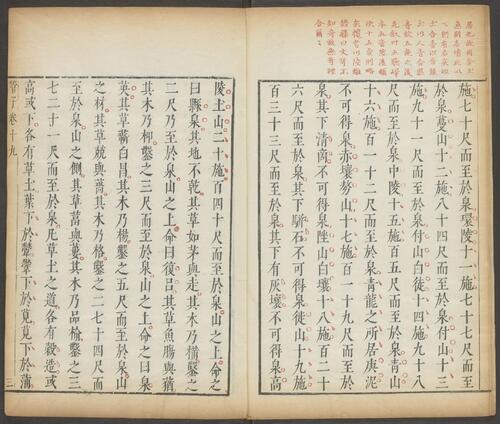 施七十尺而至於泉環陵十一施七十七尺而至
於泉蔓山十二施八十四尺而至於泉付山十三
施九十一尺而至於泉付山白徒十四施九十八
尺而至於泉中陵十五施百五尺而至於泉青山
十六施百一十二尺而至於泉青龍之所居庚泥
不可得泉赤壤㔟山十七施百一十九尺而至於
泉其下清商不可得泉陛山白壤十八施百二十
六尺而至於泉其下駢石不可得泉徙山十九施
百三十三尺而至於泉其下有灰壤不可得泉高
陵土山二十施百四十尺而至於泉山之上命之
曰縣泉其地不乾其草如茅與走其木乃樠鑿之
二尺乃至於泉山之上命曰復呂其草魚腸與蕕
其木乃柳鑿之三尺而至於泉山之上命之曰泉
英其草蘄白昌其木乃楊鑿之五尺而至於泉山
之材其草兢與薔其木乃格鑿之二七十四尺而
至於泉山之側其草葍與蔞其木乃品榆鑿之三
七二十一尺而至於泉凡草土之道各有穀造或
高或下各有草土葉下於攣攣下於莧莧下於蒲
管子卷十九 三